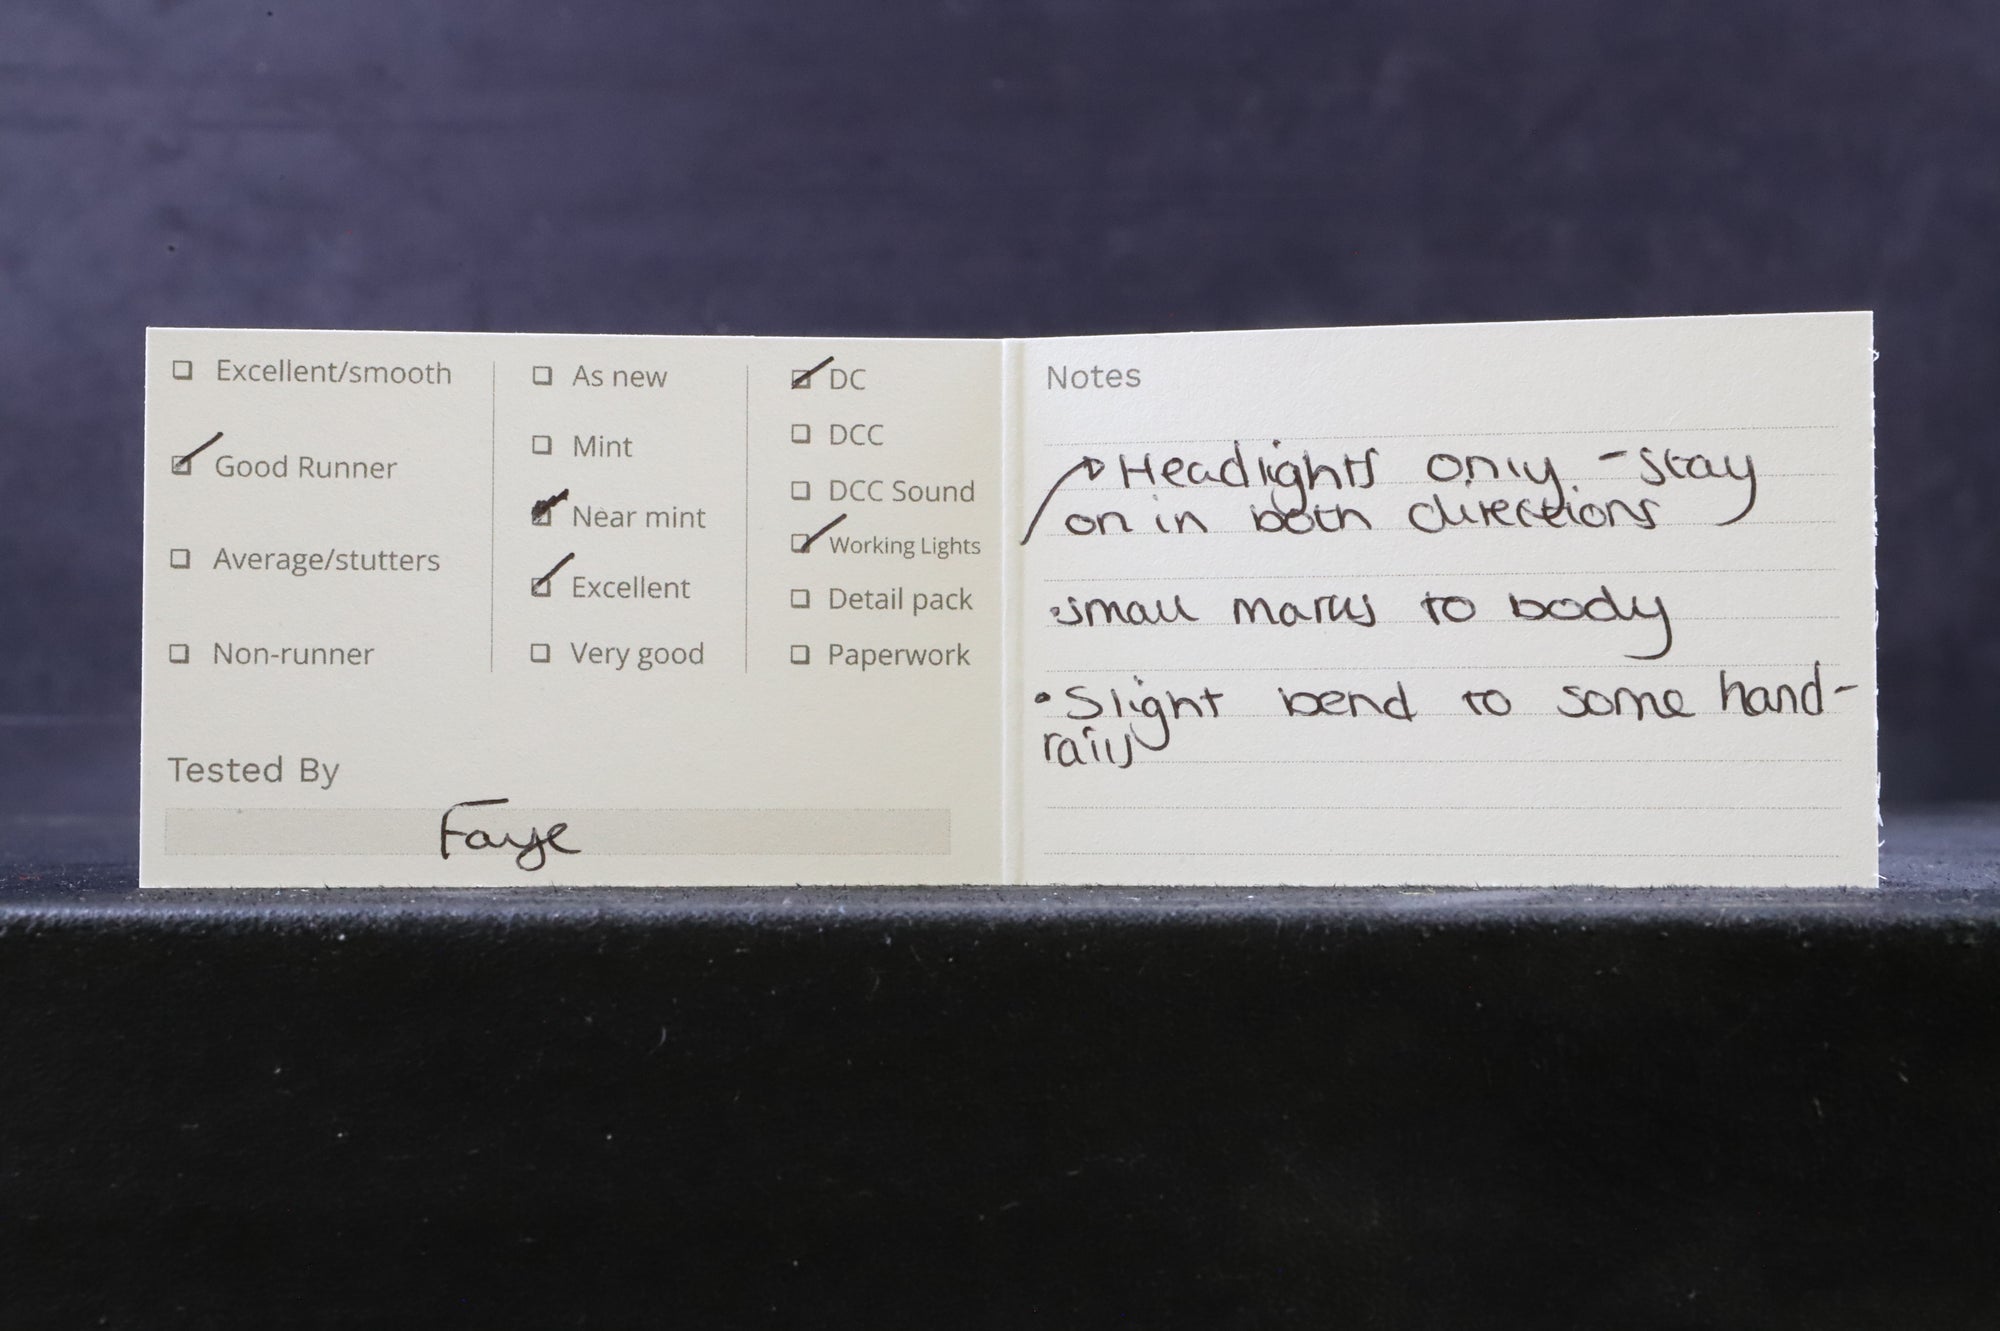 Excellent/smooth
Good Runner
Average/stutters
Non-runner
As new
Mint
Near mint
Excellent
Very good
DC
DCC
DCC Sound
Working Lights
Detail pack
Paperwork
Tested By
Faye
Notes
Headlights only - stay
on in both directions
• small marks to body
• Slight bend to some hand-
rails